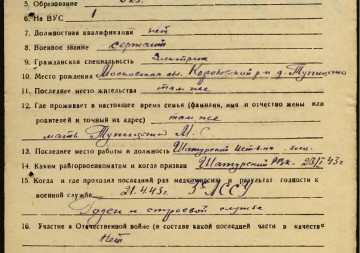 5. Образование
6. На ВУС 1
7. Должностная квалификация нет
8. Военное звание сержант
9. Гражданская специальность Электрик
10. Место рождения Московская обл. Коробовский р-н д.
11. Последнее место жительства там же
12. Где проживает в настоящее время семья (фамилия, имя и отчество жены или
родителей и точный их адрес) там же
мать М. С.
13. Последнее место работы и должность Шатурский
14. Каким райгорвоенкоматом и когда призван Шатурский РВК.
15. Когда и где проходил последний раз медкомиссию и результат годности к
военной службе 21.4.43г. ЛССУ
Годен к строевой службе
16. Участие в Отечественной войне (в составе какой последней части в качестве
Нет